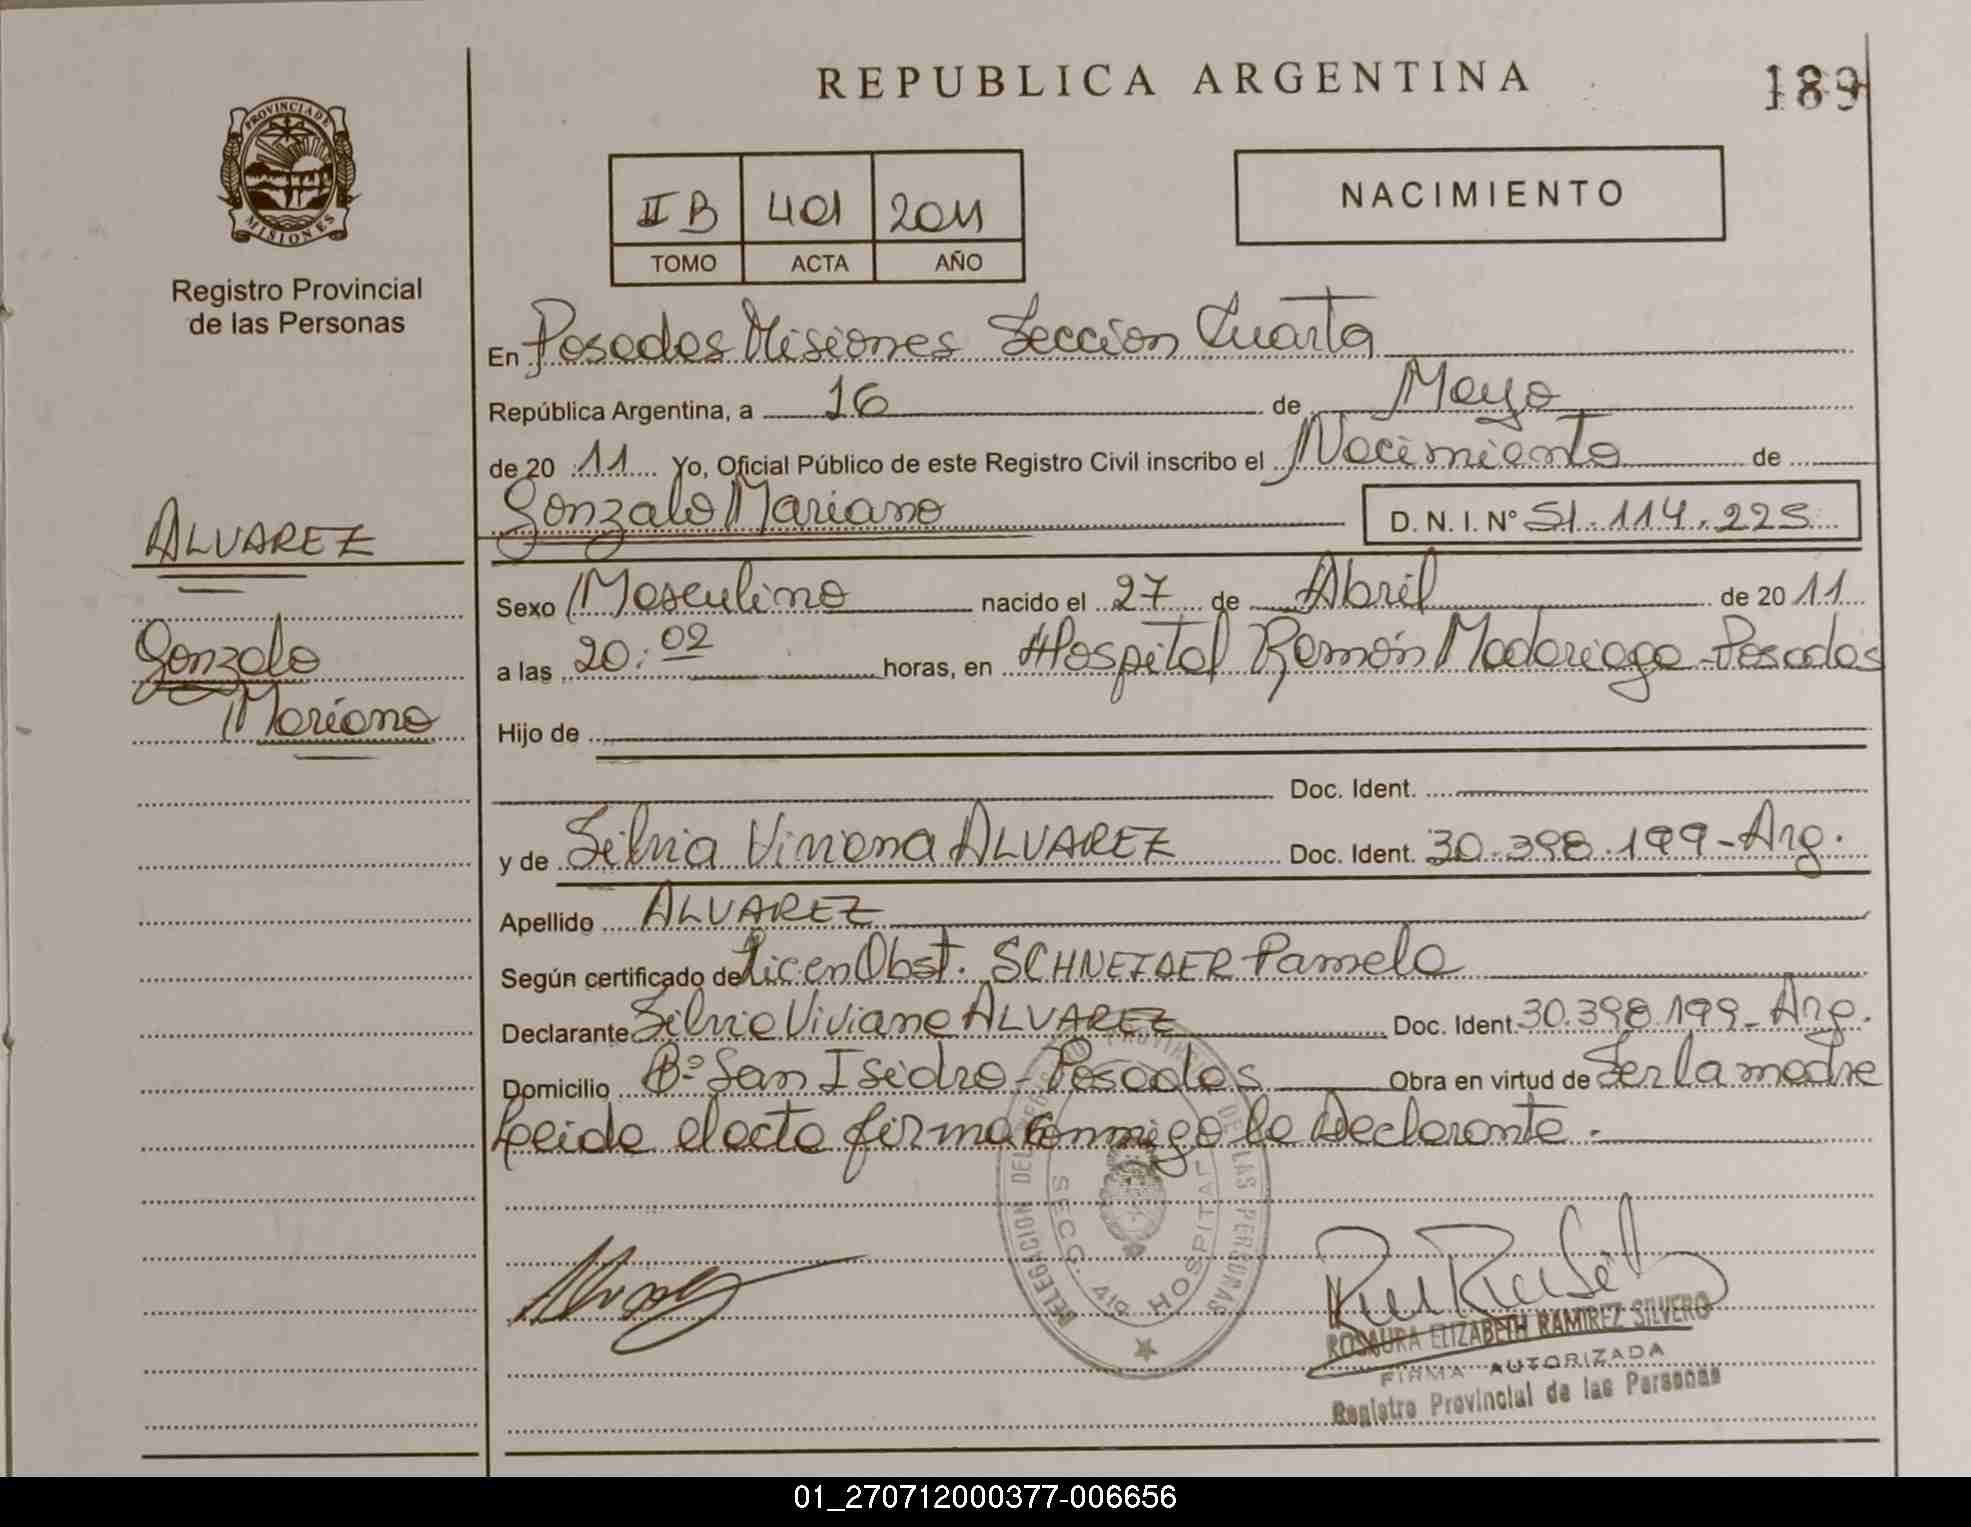 REPUBLICA ARGENTINA
189
PROVINCIA DE
MISIONES
Registro Provincial
de las Personas
II B 401 2011
TOMO ACTA AÑO
NACIMIENTO
En Posadas Misiones Sección Cuarta
República Argentina, a 16 de Mayo
de 20 11 Yo, Oficial Público de este Registro Civil inscribo el Nacimiento de
Gonzalo Mariano D. N. I. N° 51.114.225
ALVAREZ
Gonzalo
Mariano
Sexo Masculino nacido el 27 de Abril de 20 11
a las 20:02 horas, en Hospital Ramón Madariaga - Posadas
Hijo de
Doc. Ident.
y de Silvia Viviana ALVAREZ Doc. Ident. 30.398.199 - Arg.
Apellido ALVAREZ
Según certificado de Licen Obst. SCHNEIDER Pamela
Declarante Silvia Viviana ALVAREZ Doc. Ident. 30.398.199 - Arg.
Domicilio B° San Isidro - Posadas Obra en virtud de Ser la madre
Leida el acta firma conmigo la Declarante.
DELEGACION DEL REGISTRO PROVINCIAL DE LAS PERSONAS
SECC. 4ta HOSPITAL
ROSAURA ELIZABETH RAMIREZ SILVERO
FIRMA AUTORIZADA
Registro Provincial de las Personas
01_270712000377-006656